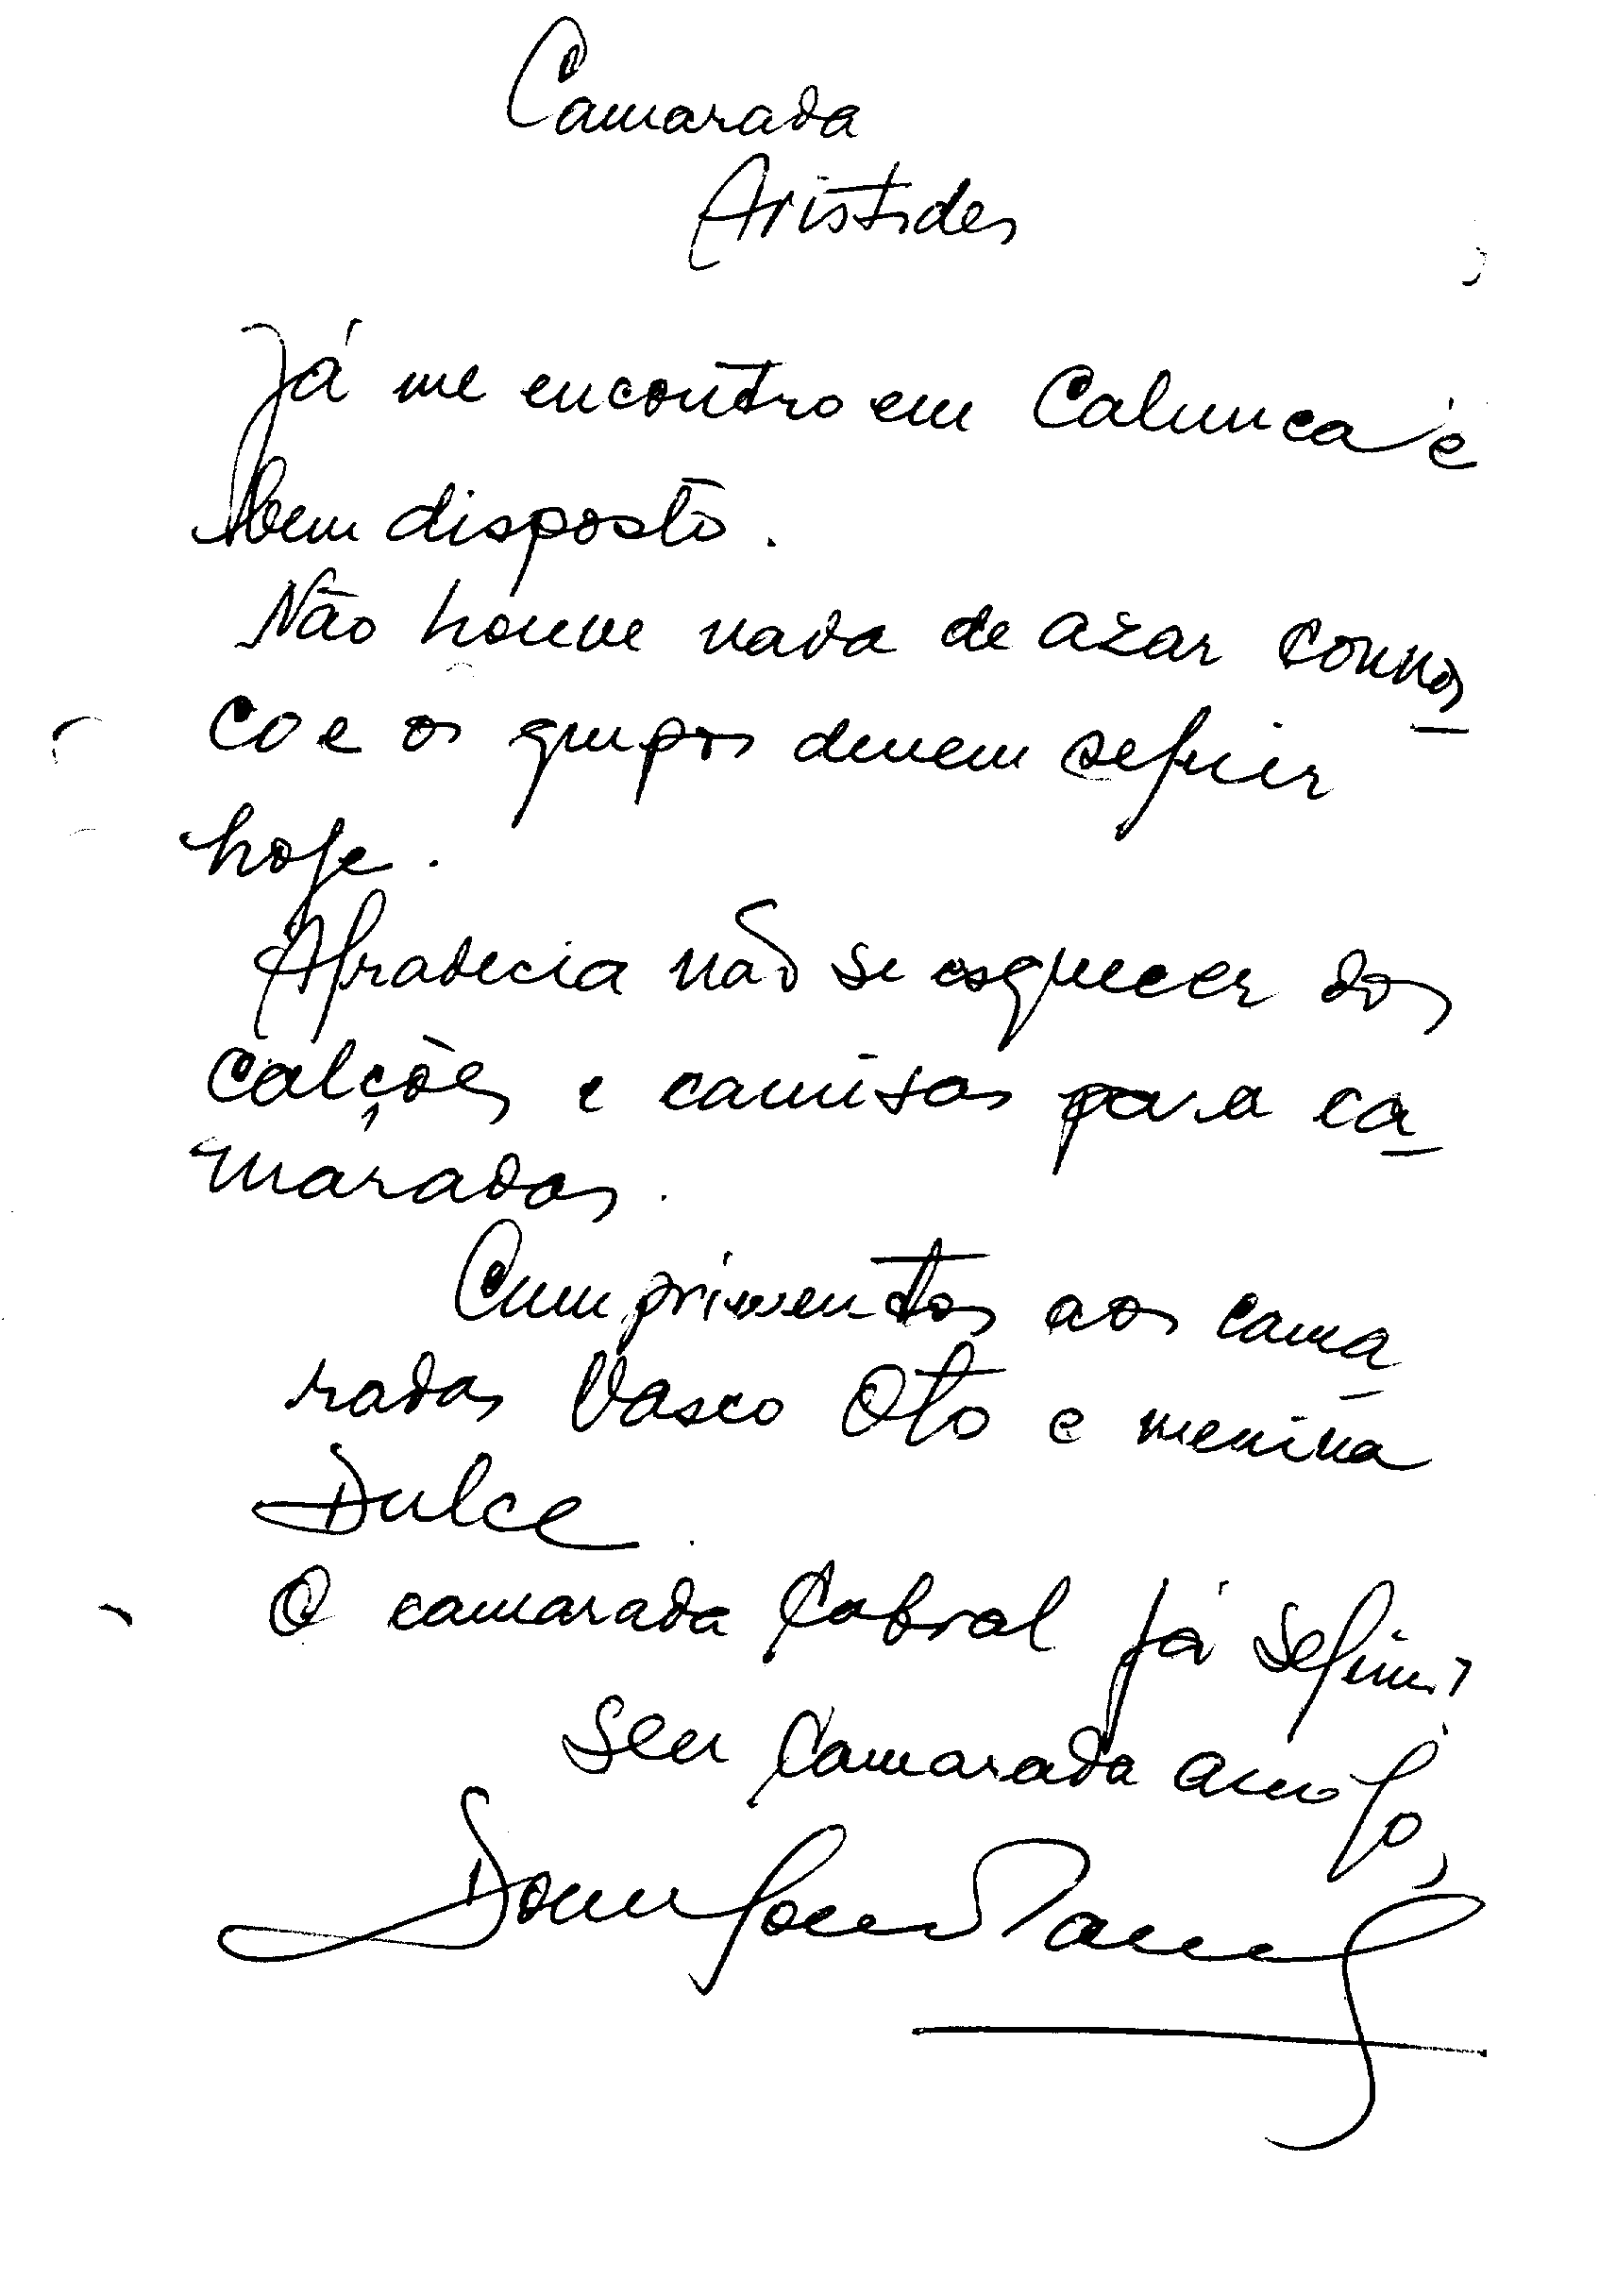 Camarada
Aristides
Já me encontro em Calunca e
bem disposto.
Não houve nada de azar connos
co e os grupos devem seguir
hoje.
Agradecia não se esquecer dos
calções e camisas para ca-
maradas.
Cumprimentos aos cama
radas Vasco Oto e menina
Dulce.
O camarada Cabral já seguiu
seu camarada amigo,
Domingos Ramos